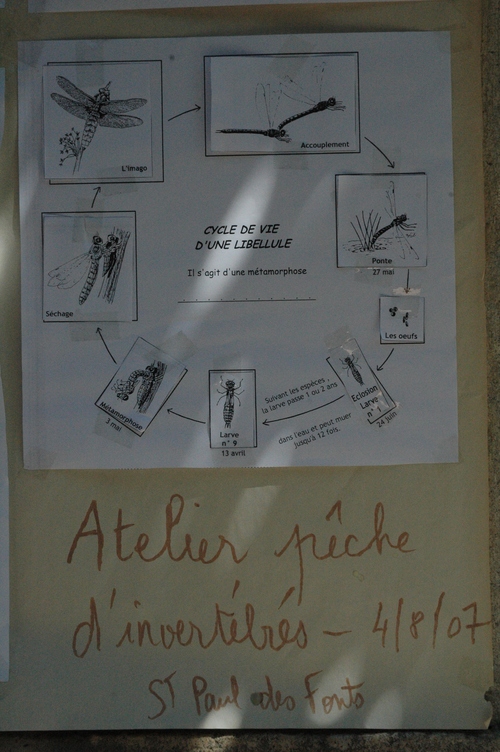 CYCLE DE VIE
D'UNE LIBELLULE
Il s'agit d'une métamorphose
L'imago
Accouplement
Ponte
27 mai
Les oeufs
Eclosion
Larve
n° 1
24 juin
Suivant les espèces,
la larve passe 1 ou 2 ans
dans l'eau et peut muer
jusqu'à 12 fois.
Larve
n° 9
13 avril
Métamorphose
3 mai
Séchage
Atelier pêche
d'invertébrés - 4/8/07
ST Paul des Fonts